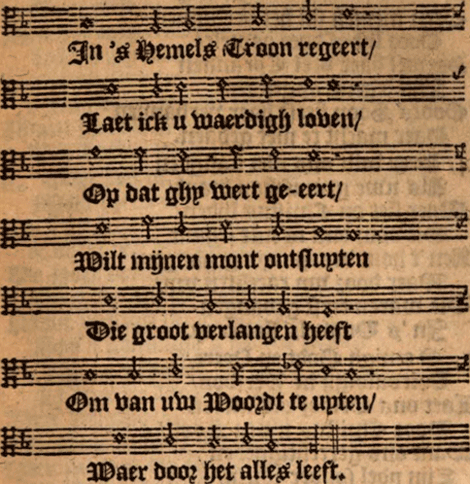 In 's Hemels Troon regeert/
Laet ick u waerdigh loven/
Op dat ghy wert ge-eert/
Wilt mijnen mont ontsluyten
Die groot verlangen heeft
Om van uw Woordt te uyten/
Waer door het alles leeft.